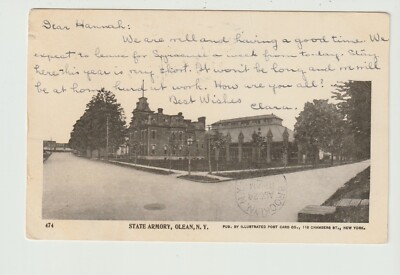 Dear Hannah:
We are well and having a good time. We
expect to leave for Syracuse a week from to-day. Stay
here this year is very short. It won't be long and we will
be at home hard at work. How are you all?
Best Wishes
Clara.
474
STATE ARMORY, OLEAN, N. Y.
PUB. BY ILLUSTRATED POST CARD CO., 118 CHAMBERS ST., NEW YORK.